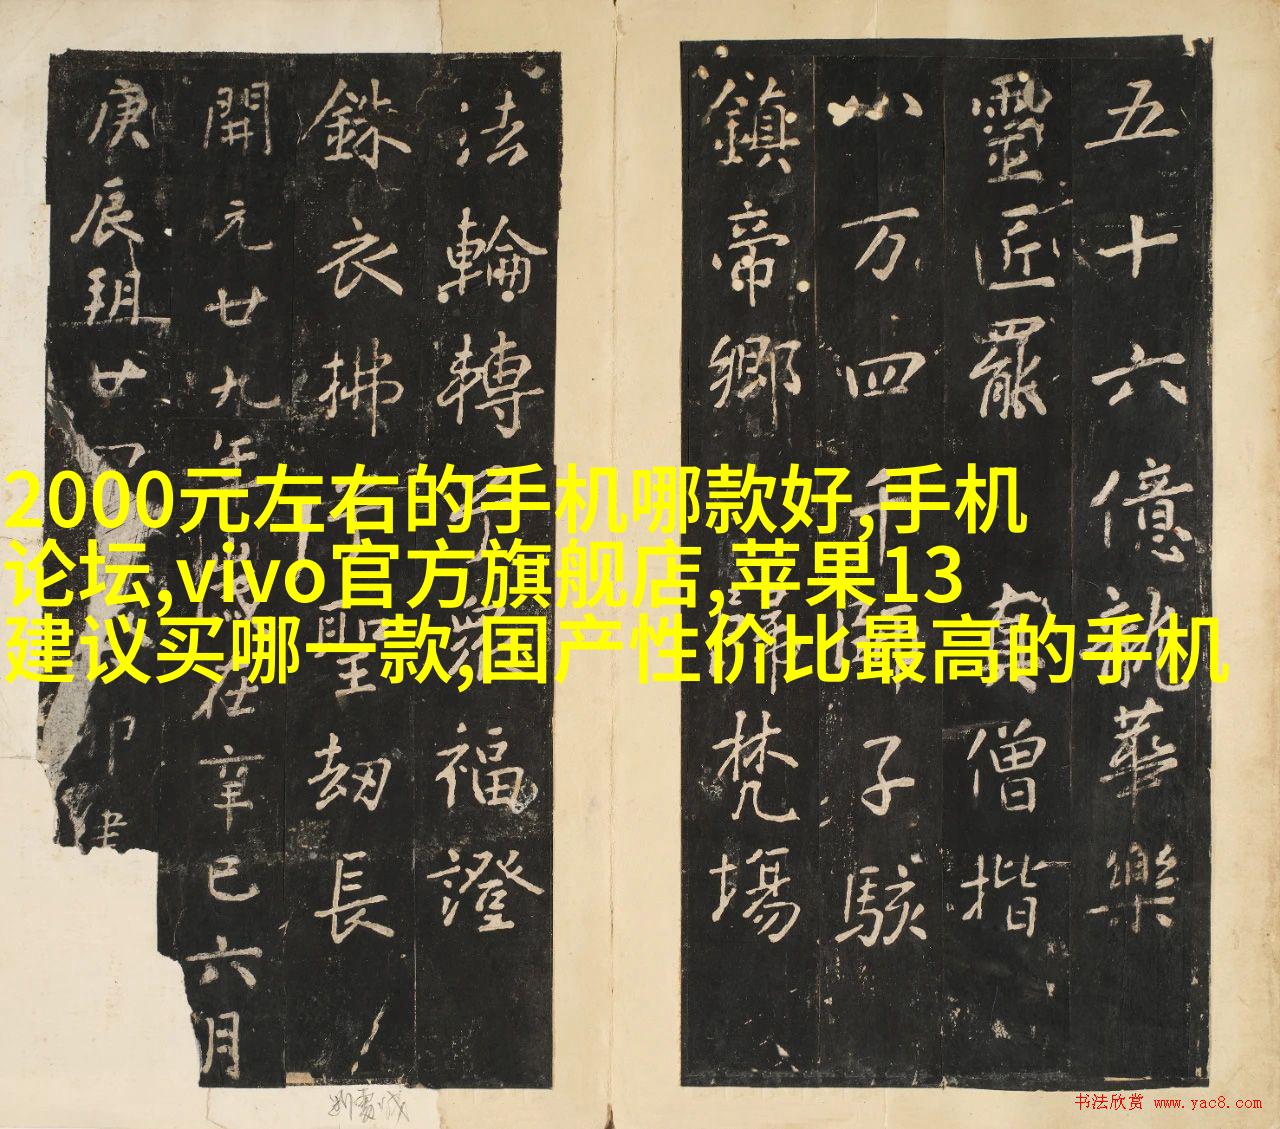 2000元左右的手机哪款好,手机
论坛,vivo官方旗舰店,苹果13
建议买哪一款,国产性价比最高的手机
五十六億龍華樂
靈匠罷真僧揩
八万四千子駭
鎮帝鄉歸梵場
法輪轉福證
銖衣拂聖劫長
開元廿九年在辛巳六月
庚辰朔廿
书法欣赏 www.yac8.com